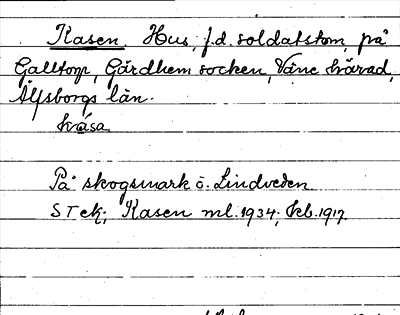 Kasen. Hus, f.d. soldatstom, på
Galltorp, Gärdhem socken, Väne härad,
Älfsborgs län.
kåsa
På skogsmark ö. Lindveden
STek; Kasen ml. 1934; kb. 1917